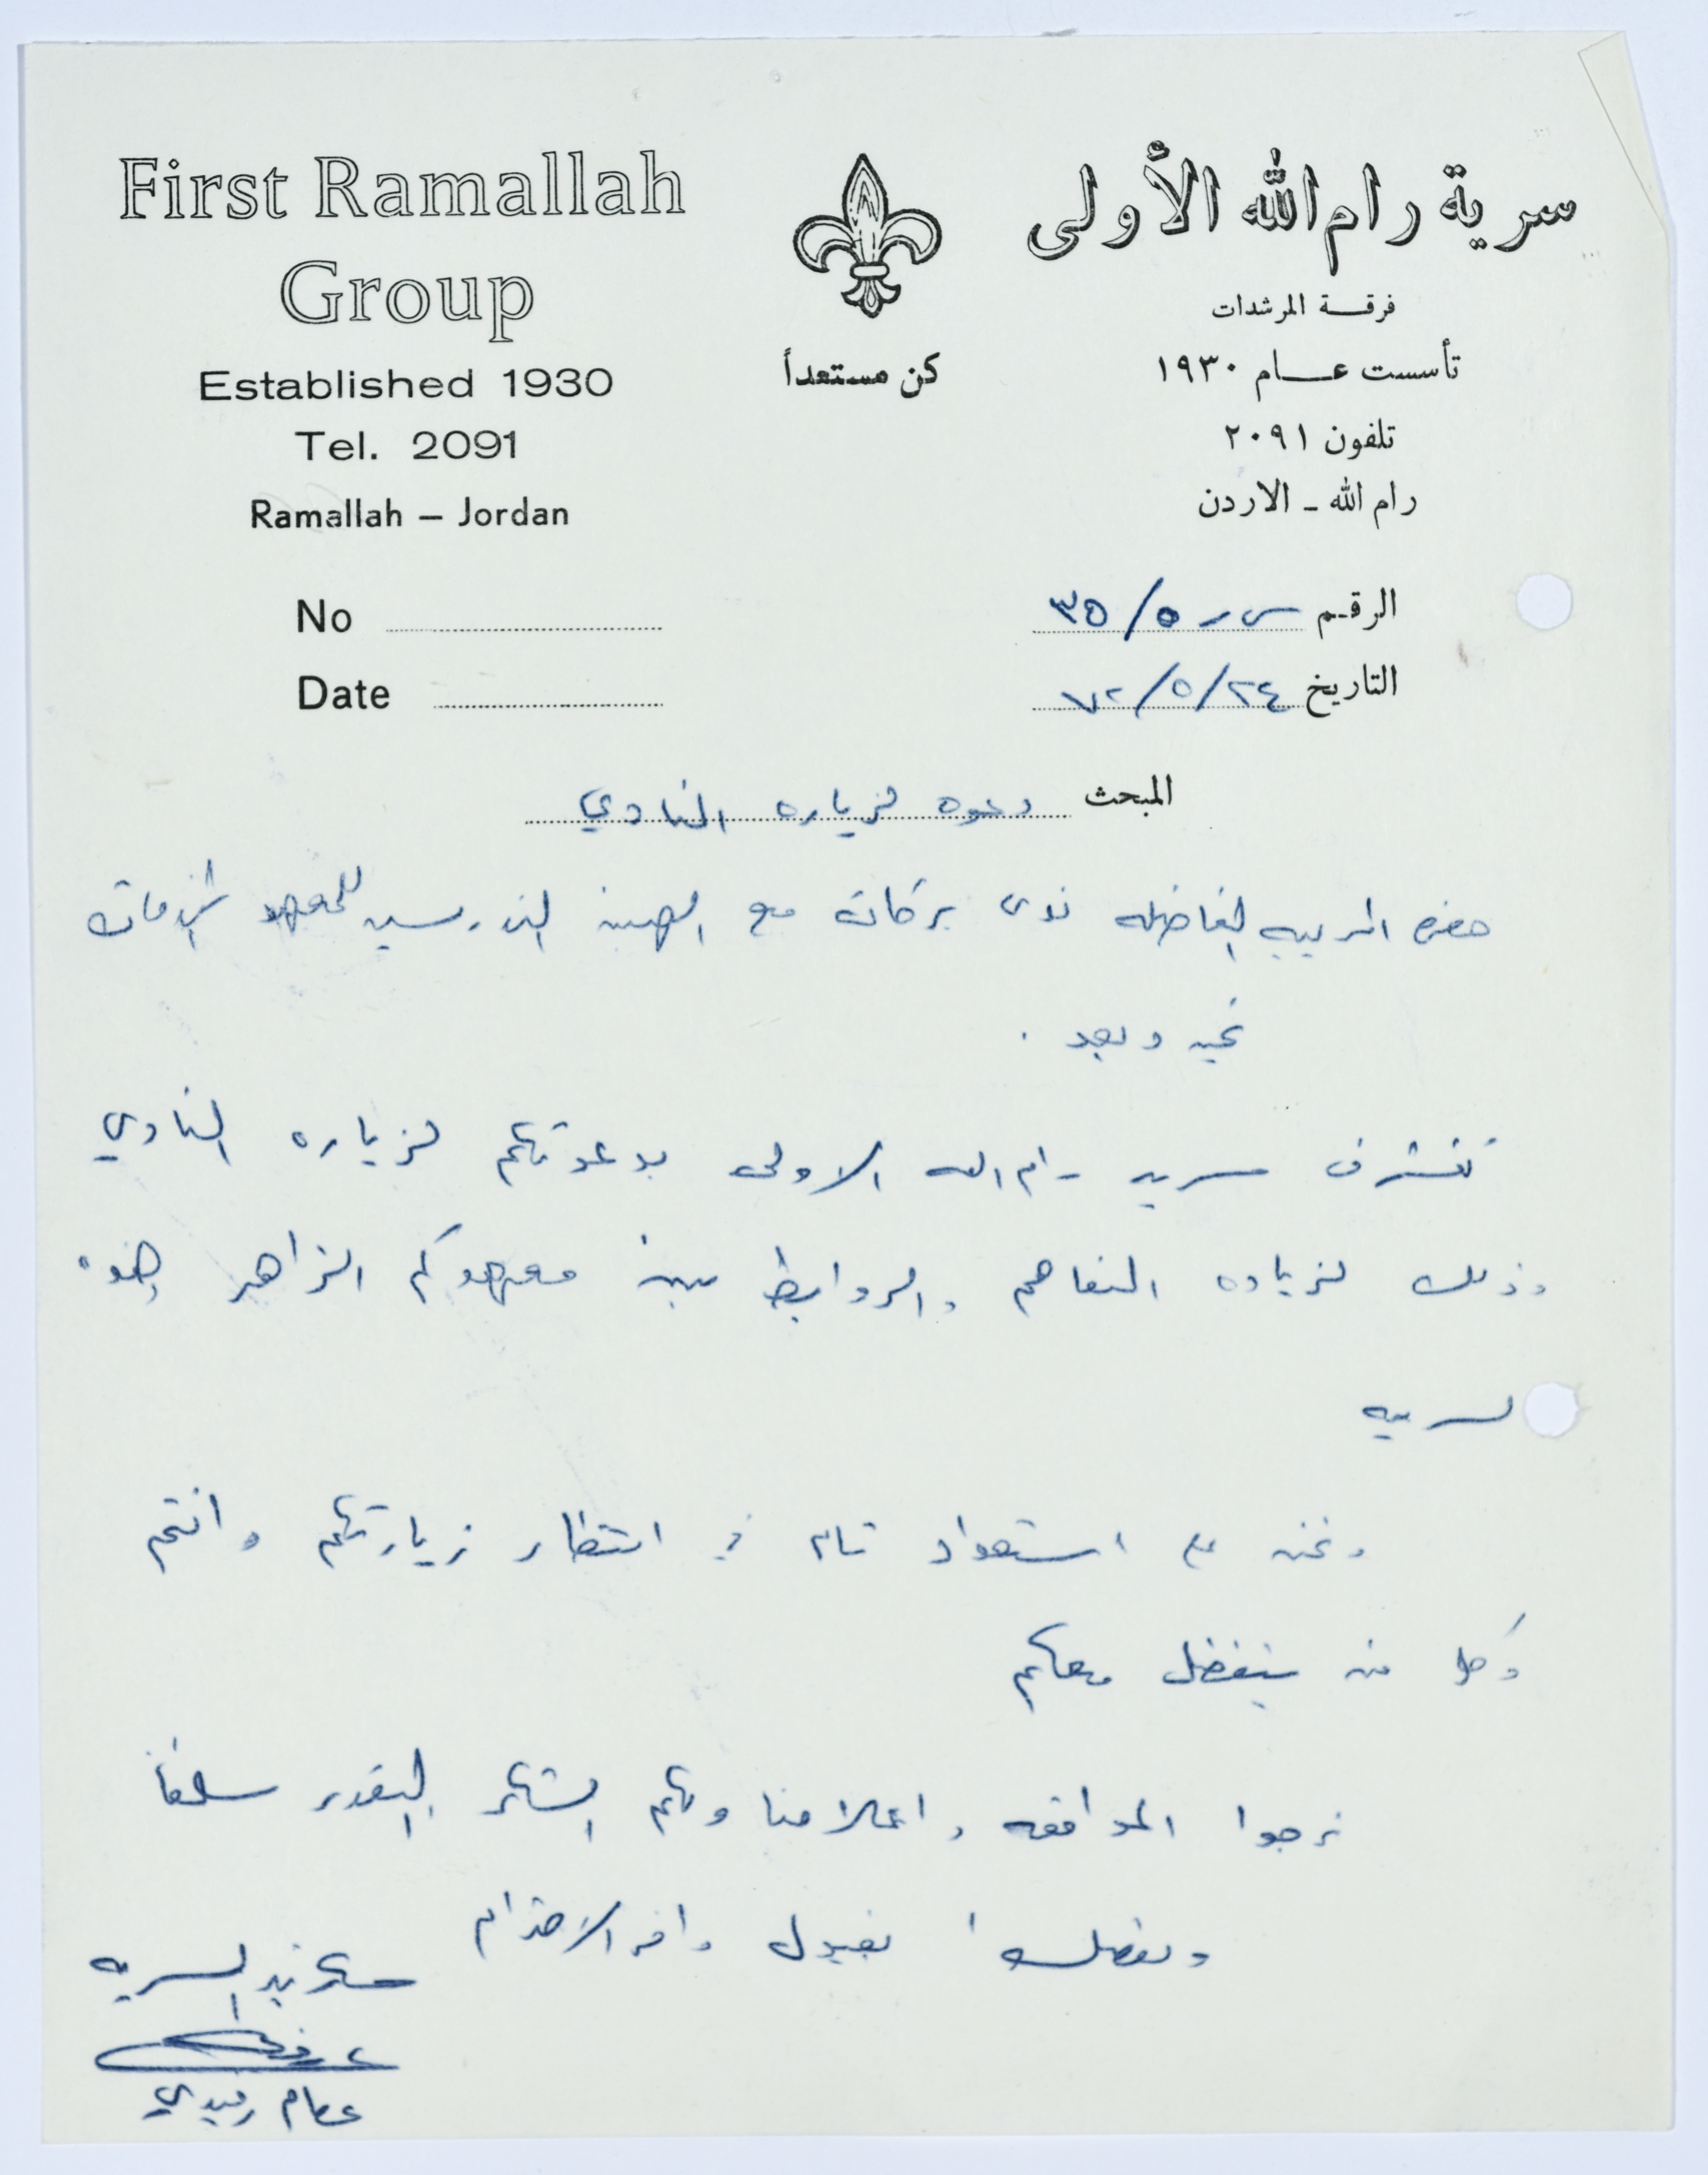 First Ramallah
Group
Established 1930
Tel. 2091
Ramallah – Jordan
كن مستعداً
سرية رام الله الأولى
فرقة المرشدات
تأسست عام ١٩٣٠
تلفون ٢٠٩١
رام الله - الاردن
No
Date
الرقم س ر ٥/٣٥
التاريخ ٢٤/٥/٧٢
المبحث دعوه لزياره النادي
حضره المربيه الفاضله ندى بركات مع الهيئه التدريسيه للمعهد
تحيه وبعد .
تتشرف سريه رام الله الاولى بدعوتكم لزياره النادي
وذلك لزياده التفاهم والروابط بين معهدكم الزاهر
السريه
ونحن على استعداد تام في انتظار زيارتكم وانتم
وكل من يتفضل معكم
نرجوا الموافقه واعلامنا ولكم الشكر والتقدير سلفاً
وتفضلوا بقبول وافر الاحترام
سكرتير السريه
عصام رفيدي